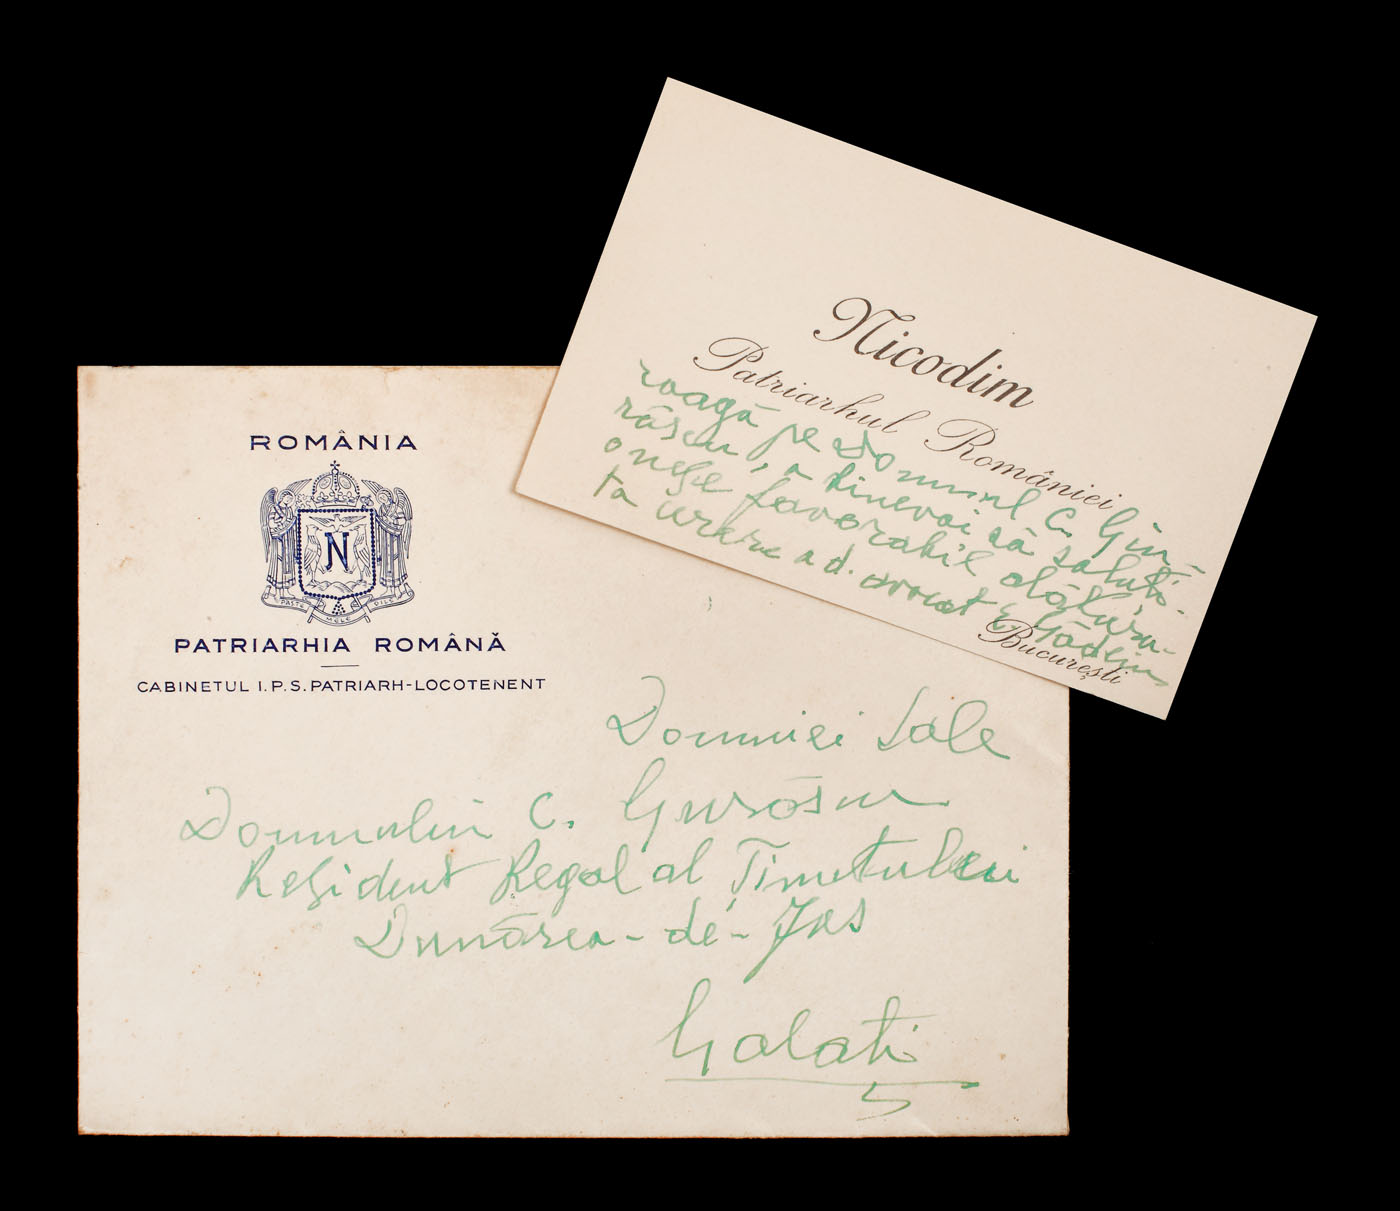 Nicodim
Patriarhul României
roagă pe Domnul C. Giu-
răscu, a binevoi să soluți-
oneze favorabil alătura-
ta cerere a d. avocat
București
ROMÂNIA
N
PAȘTE MELE OILE
PATRIARHIA ROMÂNĂ
CABINETUL I.P.S. PATRIARH-LOCOTENENT
Domniei Sale
Domnului C. Giurăscu
Rezident Regal al Ținutului
Dunărea-de-Jos
Galați